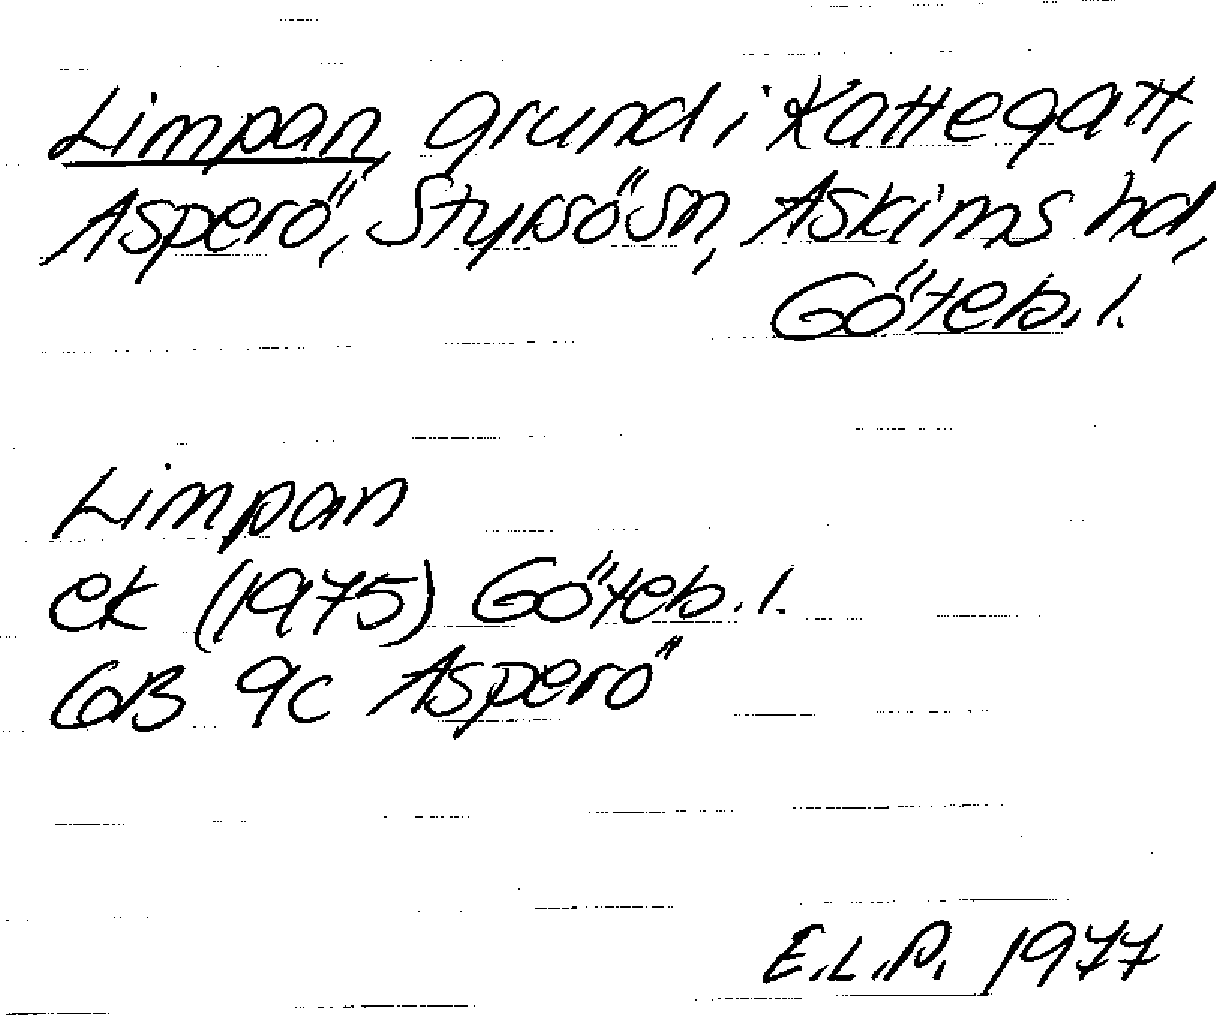 Limpan, grund i Kattegatt,
Asperö, Styrsösn, Askims hd,
Göteb. l.
Limpan
ek (1975) Göteb. l.
6B 9c Asperö
E.L.P. 1977